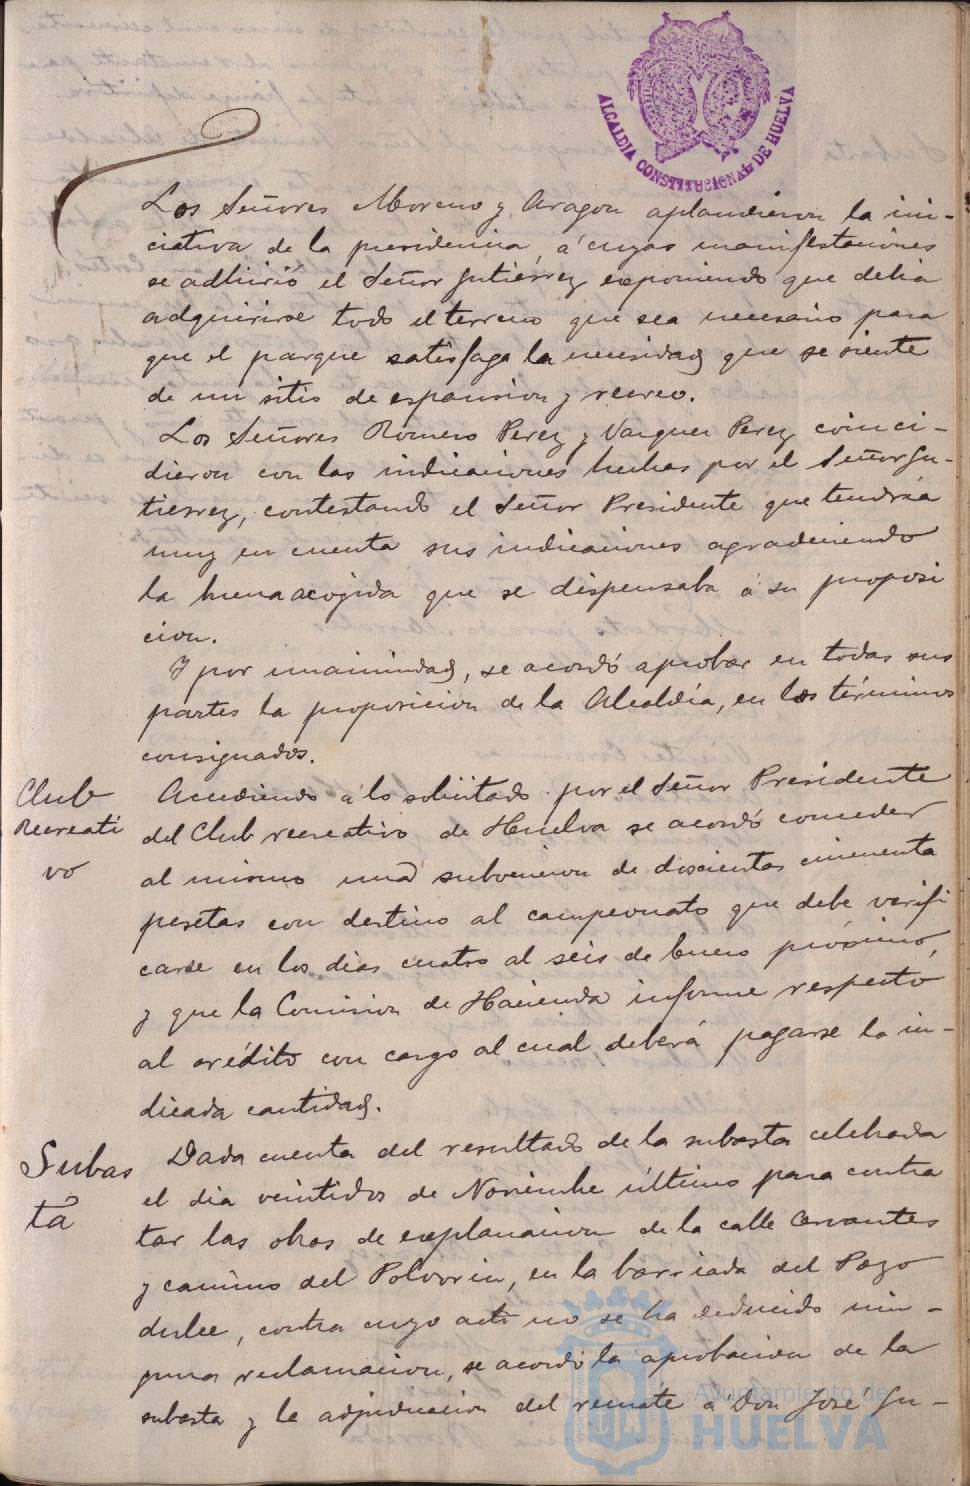 ALCALDIA CONSTITUCIONAL DE HUELVA
Los Señores Moreno y Aragon aplaudieron la ini-
ciativa de la presidencia, á cuyas manifestaciones
se adhirió el Señor Gutiérrez exponiendo que debia
adquirirse todo el terreno que sea necesario para
que el parque satisfaga la necesidad que se siente
de un sitio de espansion y recreo.
Los Señores Romero Perez y Vazquez Perez coinci-
dieron con las indicaciones hechas por el Señor Gu-
tierrez, contestando el Señor Presidente que tendría
muy en cuenta sus indicaciones agradeciendo
la buena acogida que se dispensaba á su proposi
cion.
Y por unanimidad, se acordó aprobar en todas sus
partes la proposicion de la Alcaldía, en los términos
consignados.
Club
Recreati
vo
Accediendo á lo solicitado por el Señor Presidente
del Club recreativo de Huelva se acordó conceder
al mismo una subvencion de doscientas cincuenta
pesetas con destino al campeonato que debe verifi
carse en los dias cuatro al seis de Enero próximo,
y que la Comision de Hacienda informe respecto
al crédito con cargo al cual deberá pagarse la in-
dicada cantidad.
Subas
ta
Dada cuenta del resultado de la subasta celebrada
el dia veintidos de Noviembre último para contra
tar las obras de explanacion de la calle Cervantes
y camino del Polvorin, en la barriada del Pozo
dulce, contra cuyo acto no se ha deducido nin-
guna reclamacion, se acordó la aprobacion de la
subasta y la adjudicacion del remate á Don José Gu-
Ayuntamiento de
HUELVA